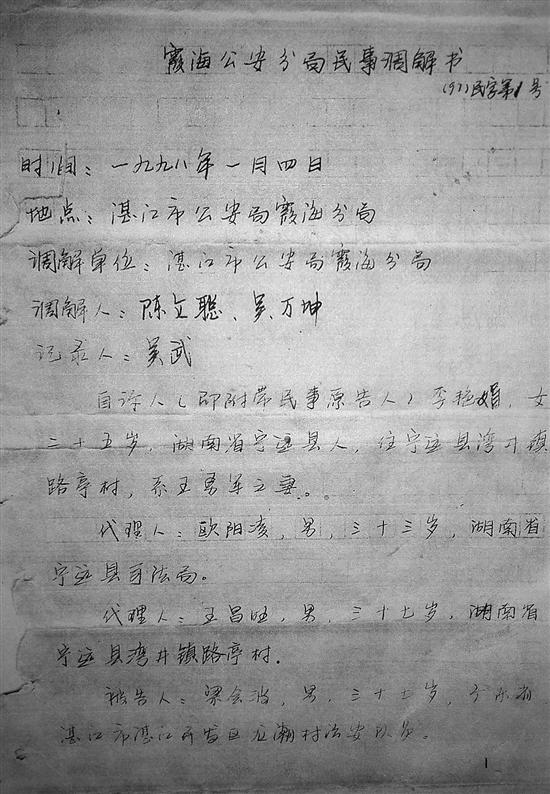 霞海公安分局民事调解书
(97)民字第1号
时间：一九九八年一月四日
地点：湛江市公安局霞海分局
调解单位：湛江市公安局霞海分局
调解人：陈立聪、吴万坤
记录人：吴武
自诉人（即附带民事原告人）李艳娟，女
三十五岁，湖南省宁远县人，住宁远县湾井镇
路亭村，系王勇军之妻。
代理人：欧阳凌，男，三十三岁，湖南省
宁远县司法局。
代理人：王昌旺，男，三十七岁，湖南省
宁远县湾井镇路亭村.
被告人：梁会治，男，三十七岁，广东省
湛江市湛江开发区龙潮村治安队员。
1